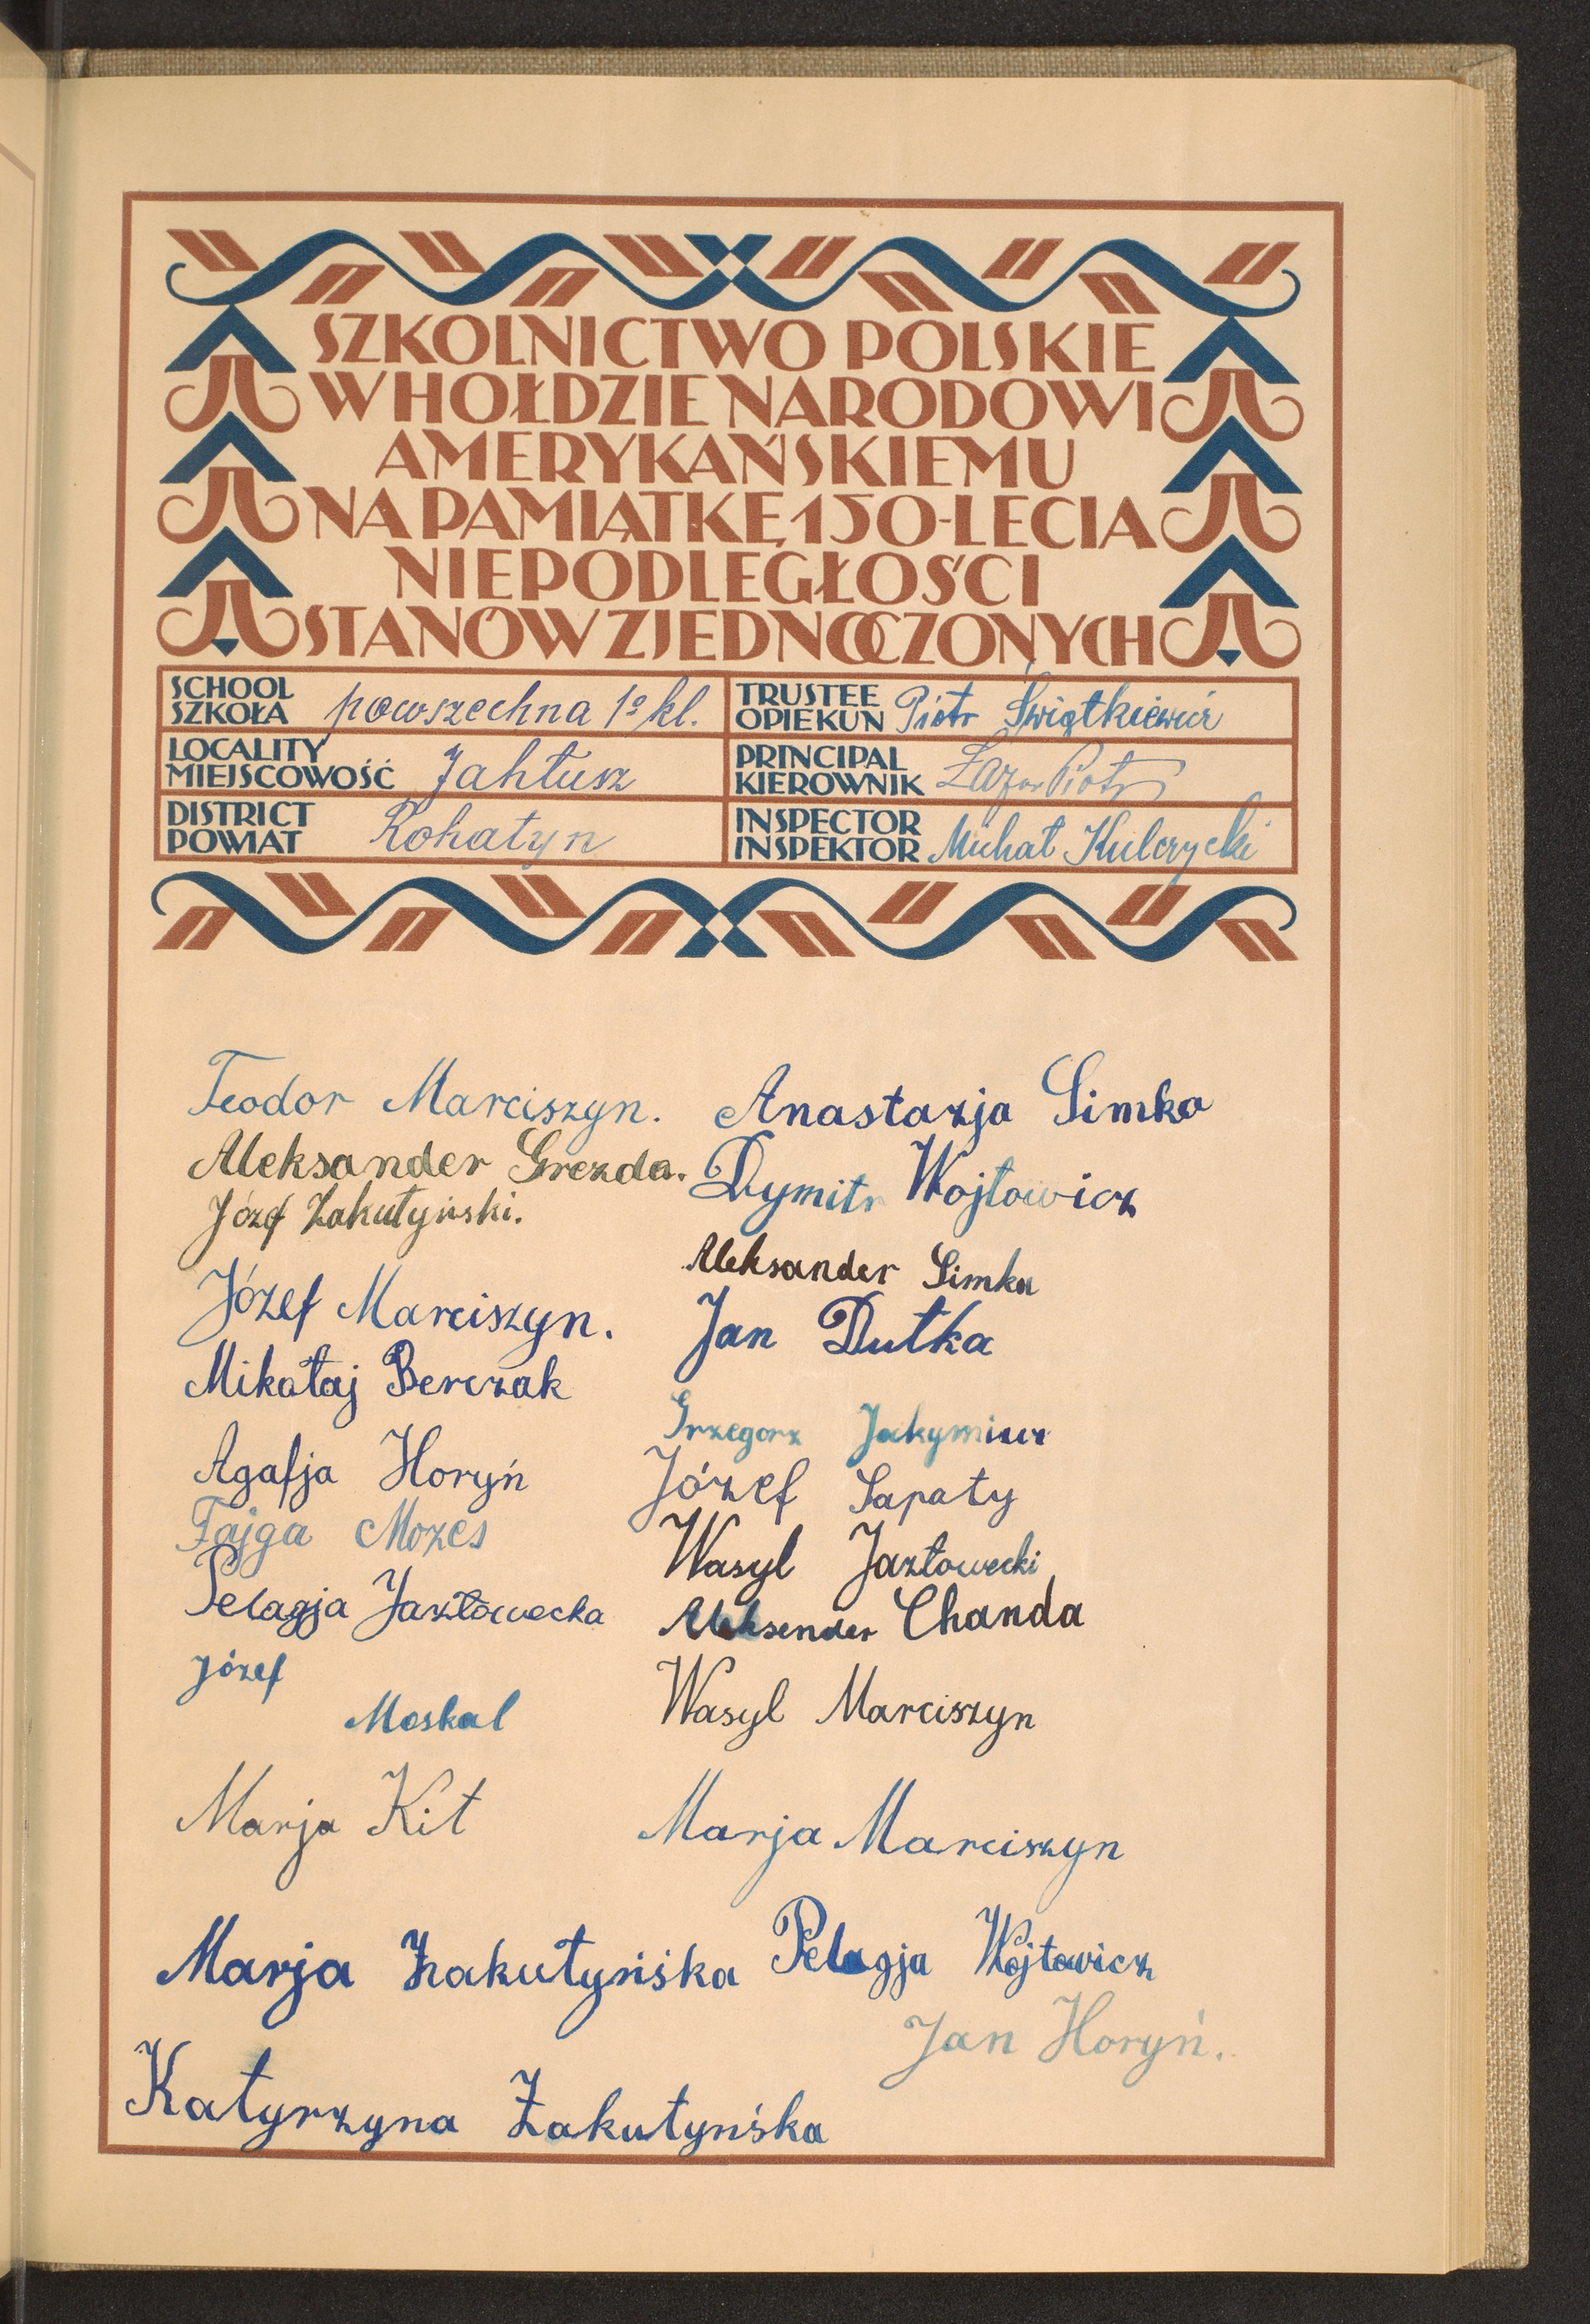 SZKOLNICTWO POLSKIE
W HOŁDZIE NARODOWI
AMERYKAŃSKIEMU
NA PAMIĄTKĘ 150-LECIA
NIEPODLEGŁOŚCI
STANÓW ZJEDNOCZONYCH
SCHOOL
SZKOŁA powszechna 1º kl.
TRUSTEE
OPIEKUN Piotr Świątkiewicz
LOCALITY
MIEJSCOWOŚĆ Jahłusz
PRINCIPAL
KIEROWNIK Łazor Piotr
DISTRICT
POWIAT Rohatyn
INSPECTOR
INSPEKTOR Michał Kulczycki
Teodor Marciszyn.
Aleksander Grezda.
Józef Zakutyński.
Józef Marciszyn.
Mikołaj Berczak
Agafja Horyń
Fajga Mozes
Pelagja Jazłowecka
Józef
Moskal
Marja Kit
Marja Zakutyńska
Katyrzyna Zakutyńska
Anastazja Simko
Dymitr Wojtowicz
Aleksander Simka
Jan Dutka
Grzegorz
Józef Sapaty
Wasyl Jazłowecki
Aleksender Chanda
Wasyl Marciszyn
Marja Marciszyn
Pelagja Wojtowicz
Jan Horyń.